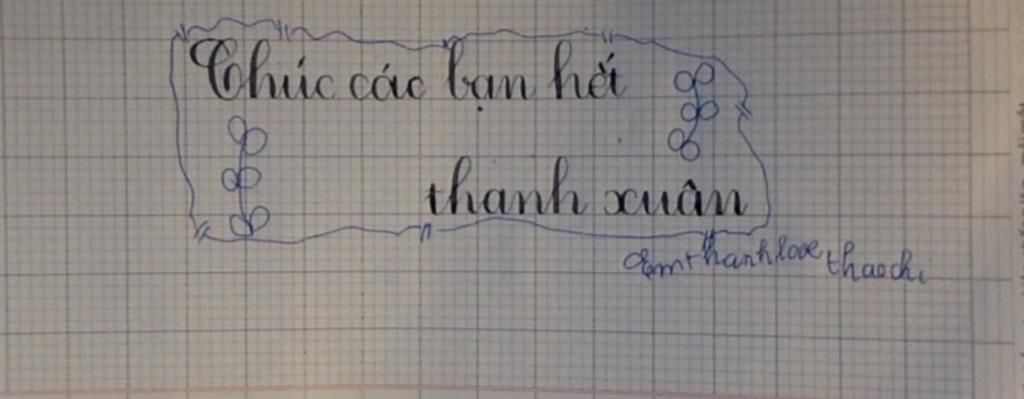 Chúc các bạn hết
thanh xuân
thanh love thaochi